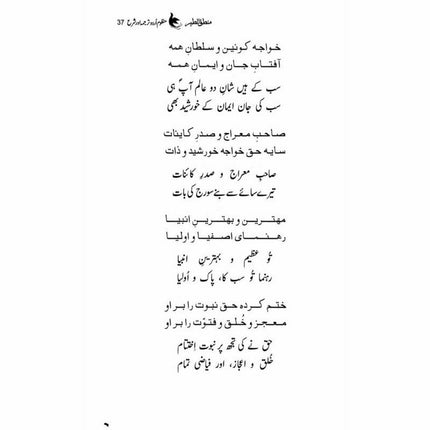 منطق الطیر منظوم اُردو ترجمہ اور شرح 37
خواجہ کونین و سلطانِ همه
آفتابِ جان و ایمانِ همه
سب کے ہیں شانِ دو عالم آپؐ ہی
سب کی جان ایمان کے خورشید بھی
صاحبِ معراج و صدرِ کاینات
سایه حق خواجه خورشید و ذات
صاحبِ معراج و صدرِ کائنات
تیرے سائے سے بنے سورج کی بات
مهترین و بهترینِ انبیا
رهنمای اصفیا و اولیا
تُو عظیم و بہترینِ انبیا
رہنما تُو سب کا، پاک و اُولیا
ختم کرده حق نبوت را بر او
معجز و خُلق و فتوّت را بر او
حق نے کی تجھ پر نبوت اِختتام
خُلق و اعجاز، اور فیاضی تمام